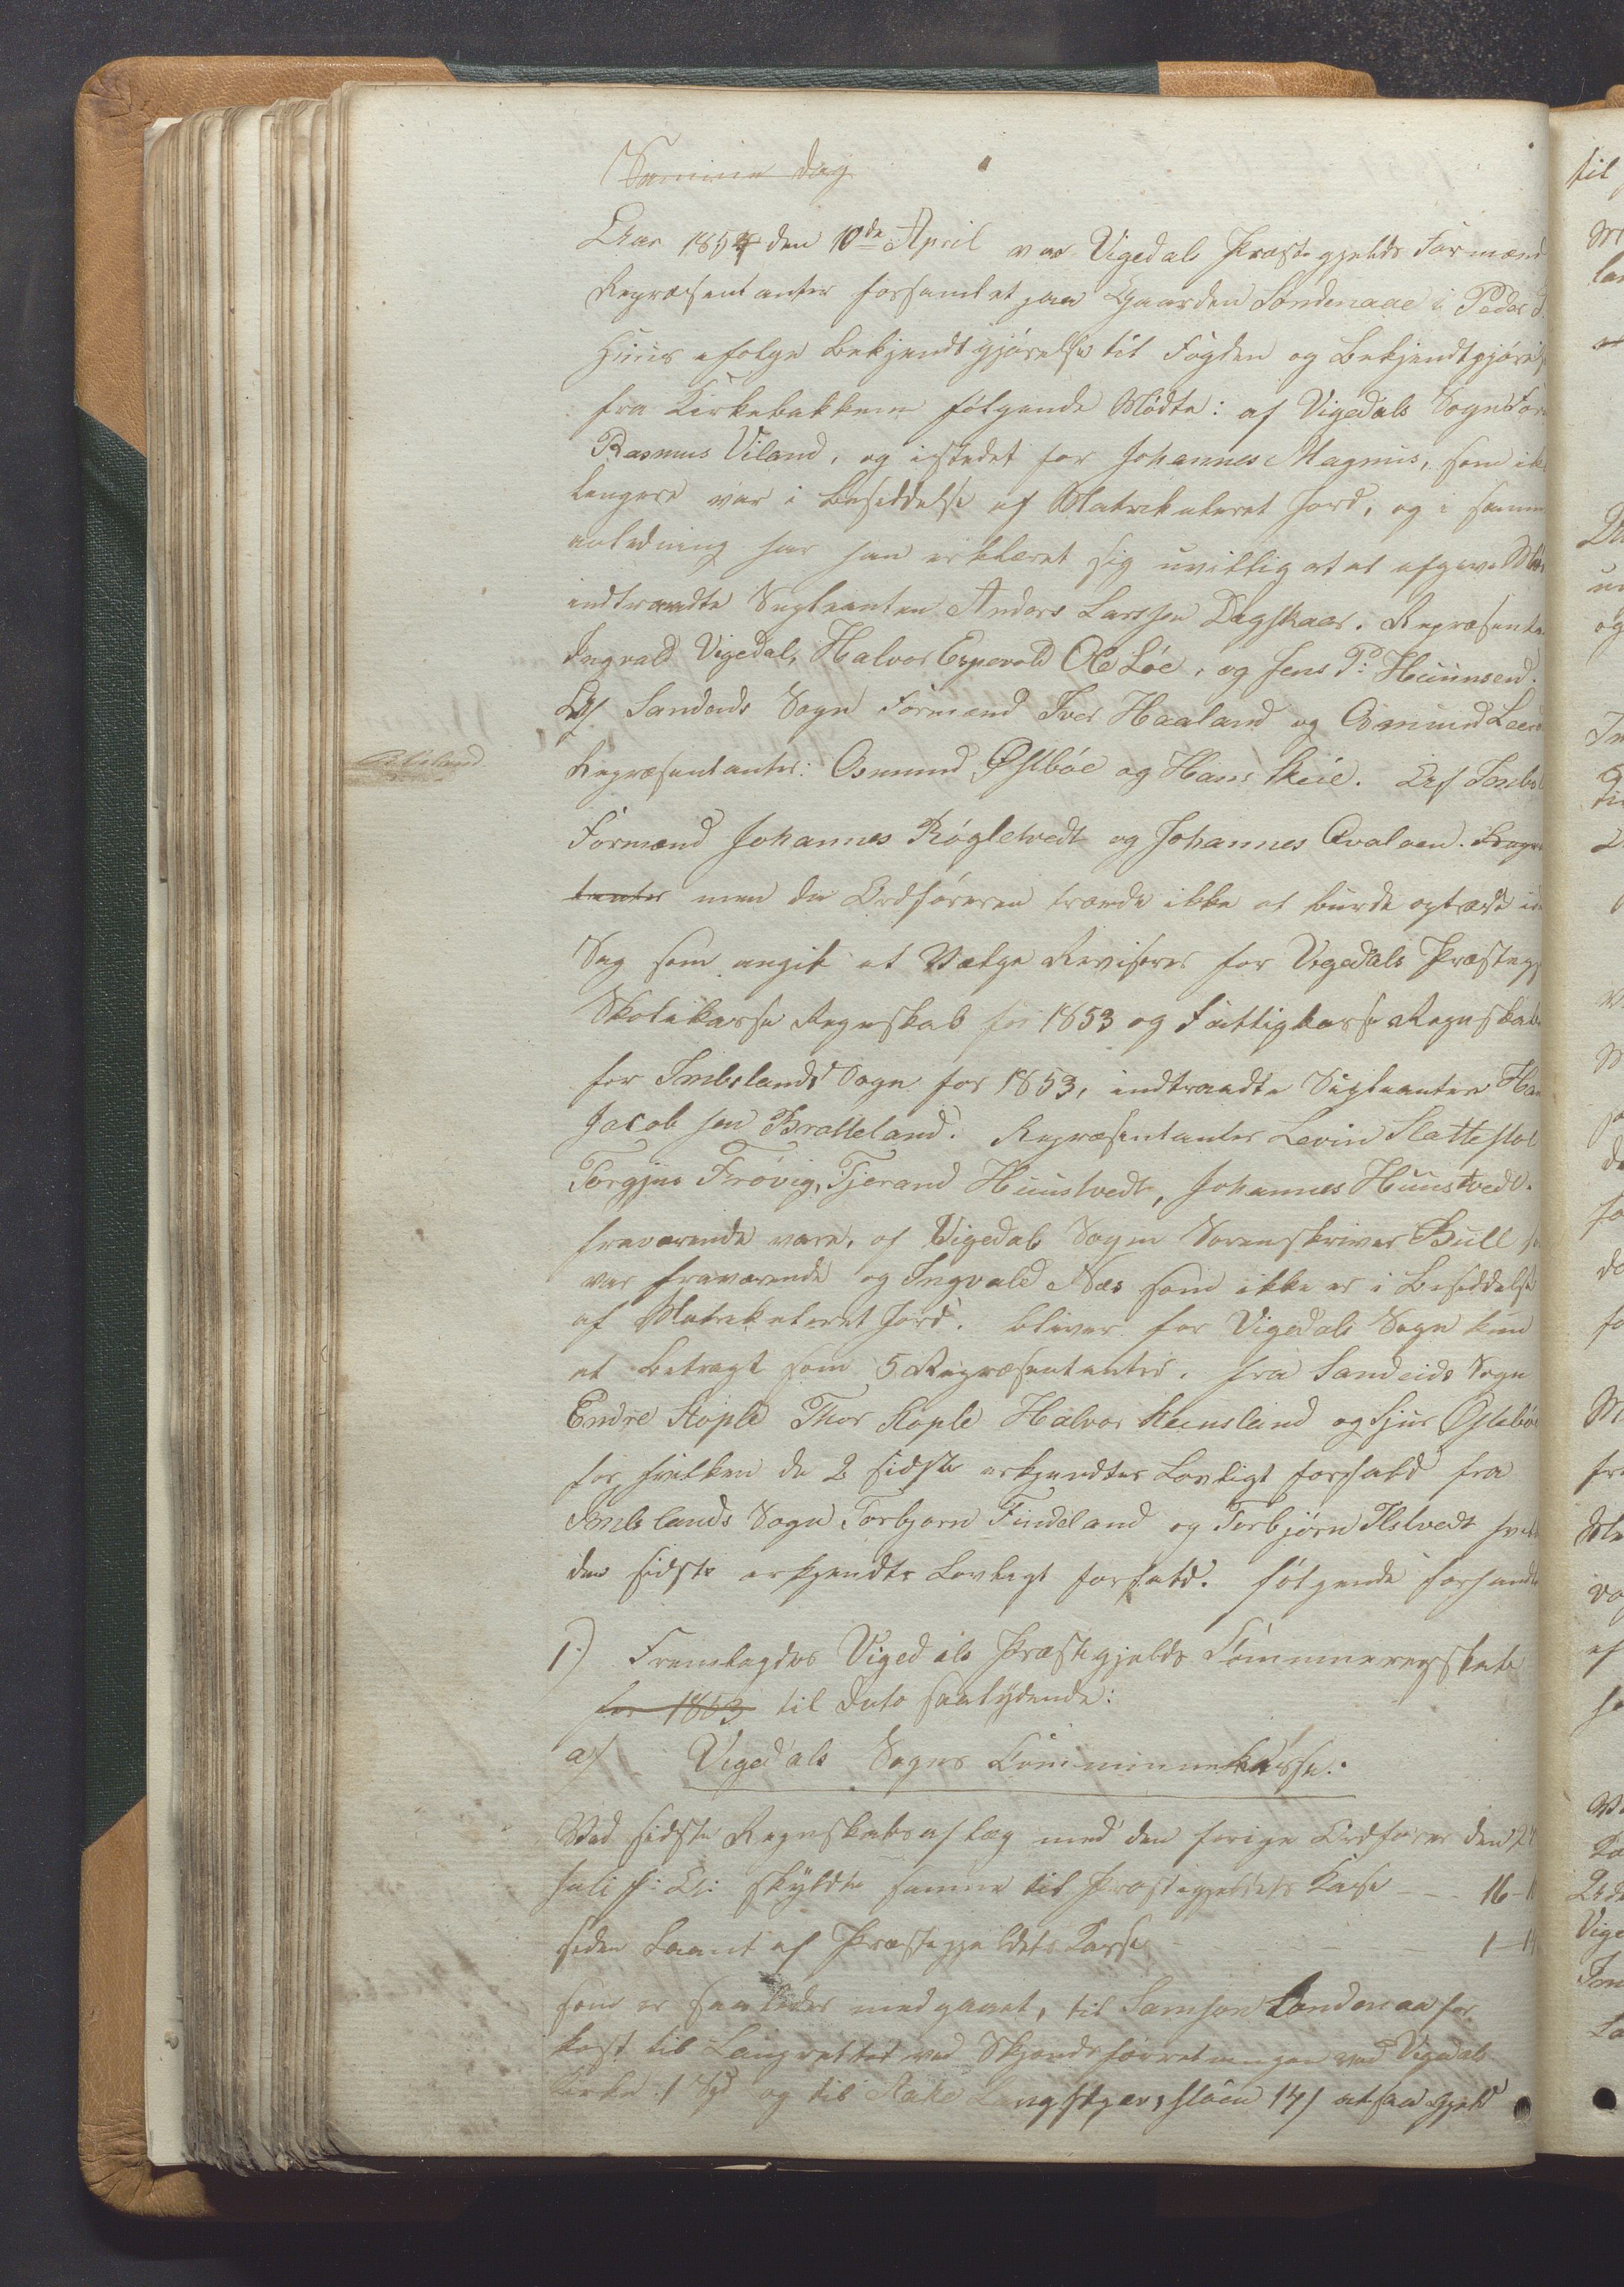 Samme Dag
Aar 1854 den 10de April var Vigedals Præstegjelds Formænd
Repræsentanter forsamlet paa Gaarden Søndenaae i Peder
Huus efølge Bekjendtgjørelse til Fogden og Bekjendtgjørelse
fra Kirkebakken følgende Mødte: af Vigedals Sogn For
Rasmus Viland, og istedet for Johannes Magnus, som ik
længere var i Besiddelse af Matrikuleret Jord, og i samme
anledning har han erklæret sig uvillig at at afgive Mø
indtraadte Supleanten Anders Larssen Dagskaar. Repræsenta
Ingvald Vigedal, Halvor Espevold Ole Løe, og Jens P: Huunsend.
Af Sandeids Sogn Formænd Iver Haaland og Osmund Lee
Repræsentanter: Osmund Østbøe og Hans Skeie. Af Imbsl
Formænd Johannes Røgletvedt og Johannes Qvaloen. Repr
tanter men da Ordføreren troede ikke at burde optræde i
Sag som angik at Vælge Revisorer for Vigedals Præstegj
Skolekasse Regnskab for 1853 og Fattigkasse Regnskab
for Imbslands Sogn for 1853, indtraadte Supleanten Ha
Jacobsen Bratteland. Repræsentanter Levin Slattestøl
Torgjus Frøvig, Tjerand Huustvedt, Johannes Huustvedt.
fraværende vare, af Vigedals Sogn Sorenskriver Bull
var fraværende og Ingvald Næs som ikke er i Besiddelse
af Matrikuleret Jord. bliver for Vigedals Sogn kun
at betragt som 5 Repræsentanter. fra Sandeids Sogn
Endre Stople Thor Stople Halvor Steensland og Sjur Østebø
for hvilken de 2 sidste erkjendtes Lovligt forfald fra
Imbslands Sogn Torbjørn Tindeland og Torbjørn Ilstvedt
den sidste erkjendte Lovligt forfald. følgende forhandl
1) Fremlagdes Vigedals Præstegjelds Communeregnskab
for 1853 til Dato saalydende:
a) Vigedals Sogns Communekasse:
Ved sidste Regnskabsaflæg med den forige Ordfører den 24
Juli f: A: skyldte samme til Præstegjeldets Kasse - - - 16-
siden Laant af Præstegjeldets Kasse - - - 1-
som er saaledes medgaaet, til Samson Søndenaae for
kost til Laugrettet ved Skjønds forretningen ved Vigedals
Kirke 1 Spd og til Aake 14/ altsaa gjeld